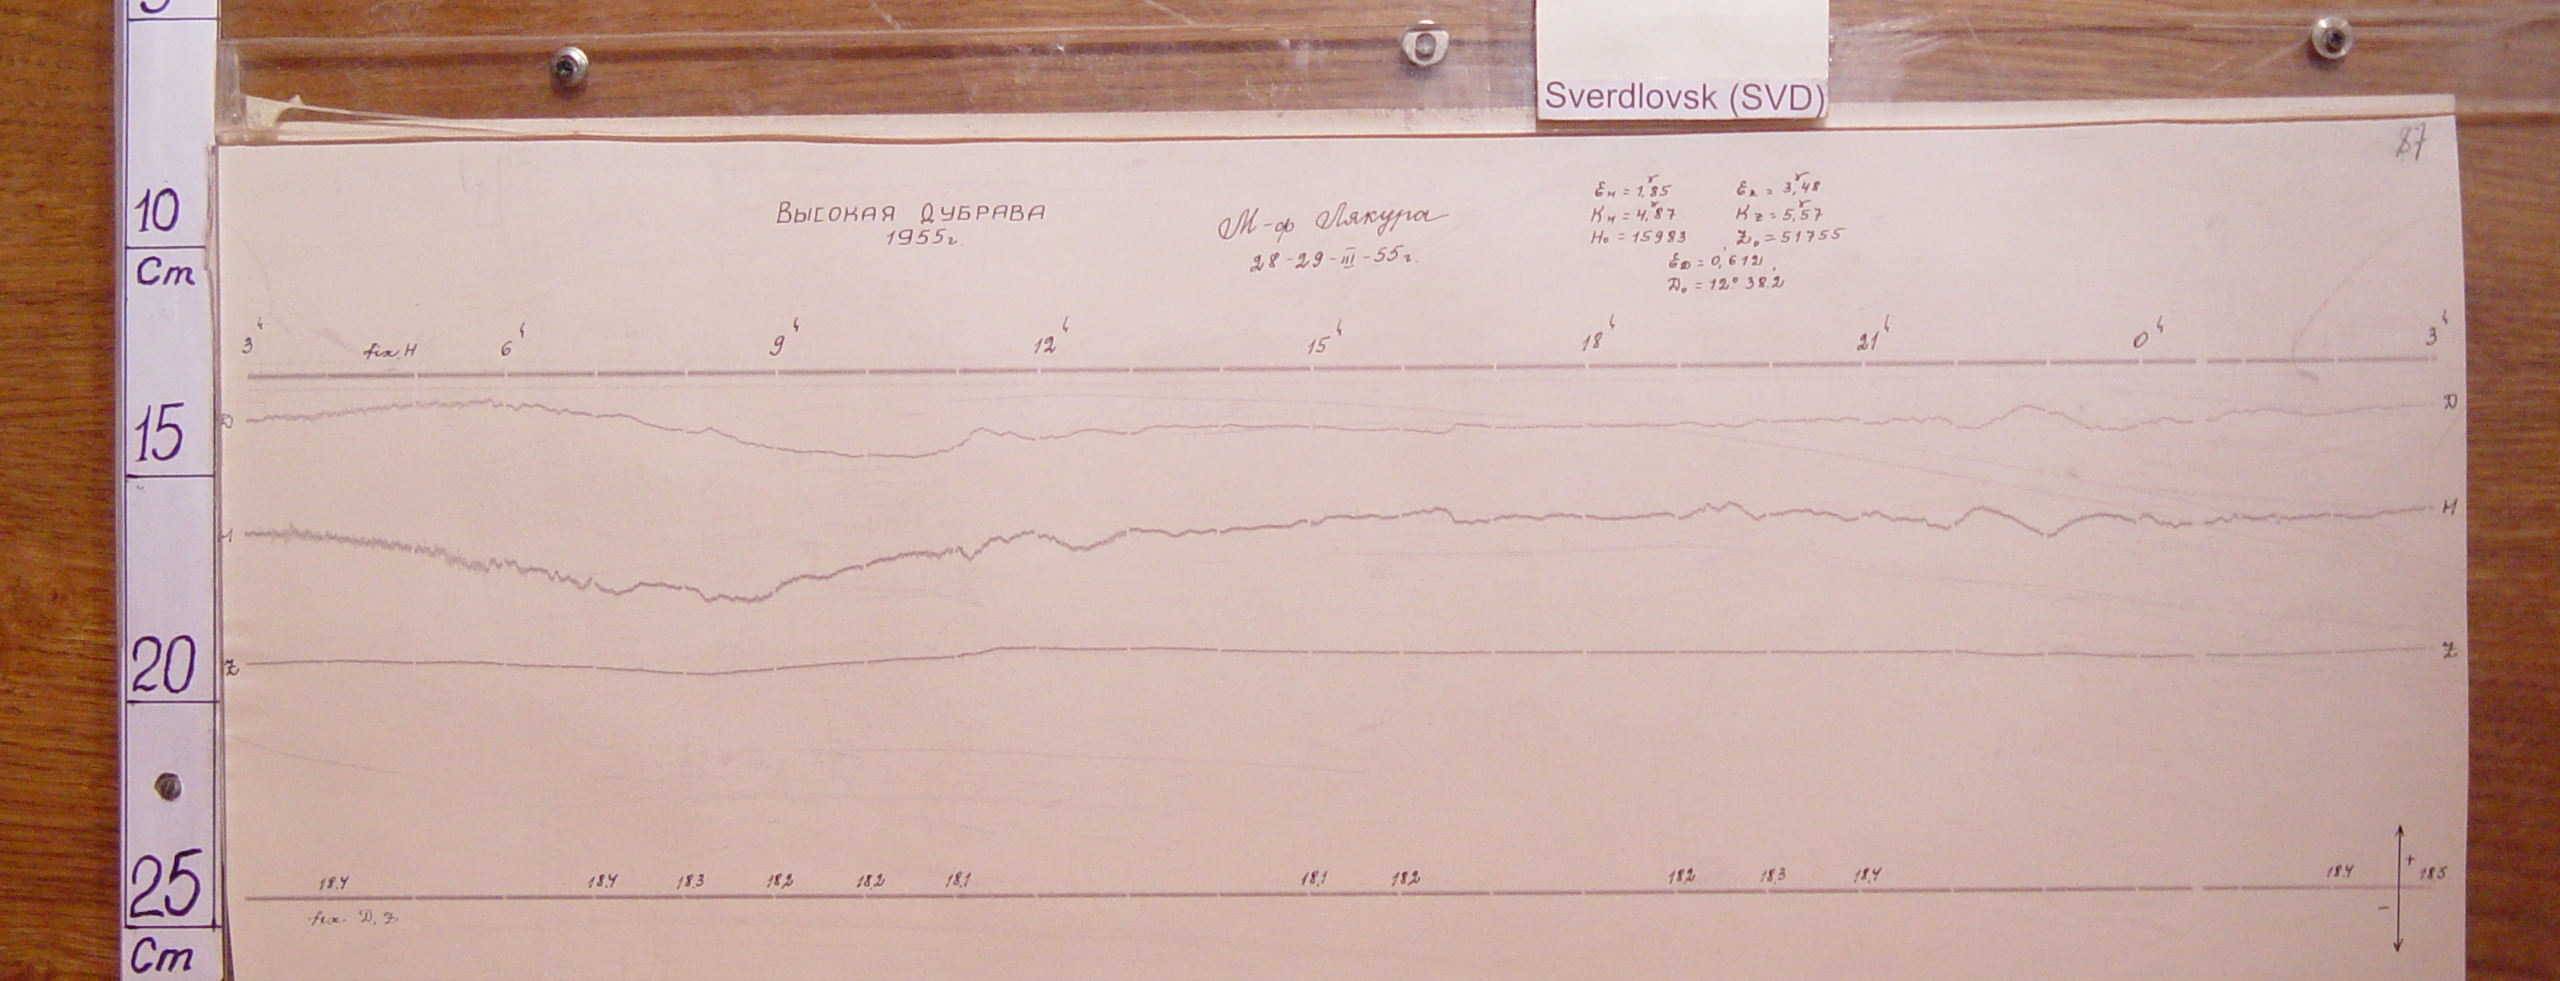 Sverdlovsk (SVD)
87
10
Cm
15
20
25
Cm
ВЫСОКАЯ ДУБРАВА
1955г.
М-ф Лякура
28-29-III-55г.
Ен = 1,γ85 Еz = 3,γ48
Кн = 4,γ87 Кz = 5,γ57
Н₀ = 15983 Z₀ = 51755
ЕD = 0,′612
D₀ = 12° 38,′2
3ч fix. H 6ч 9ч 12ч 15ч 18ч 21ч 0ч 3ч
D D
H H
Z Z
18,4 18,4 18,3 18,2 18,2 18,1 18,1 18,2 18,2 18,3 18,4 18,4 + 18,5
fix. D, Z −